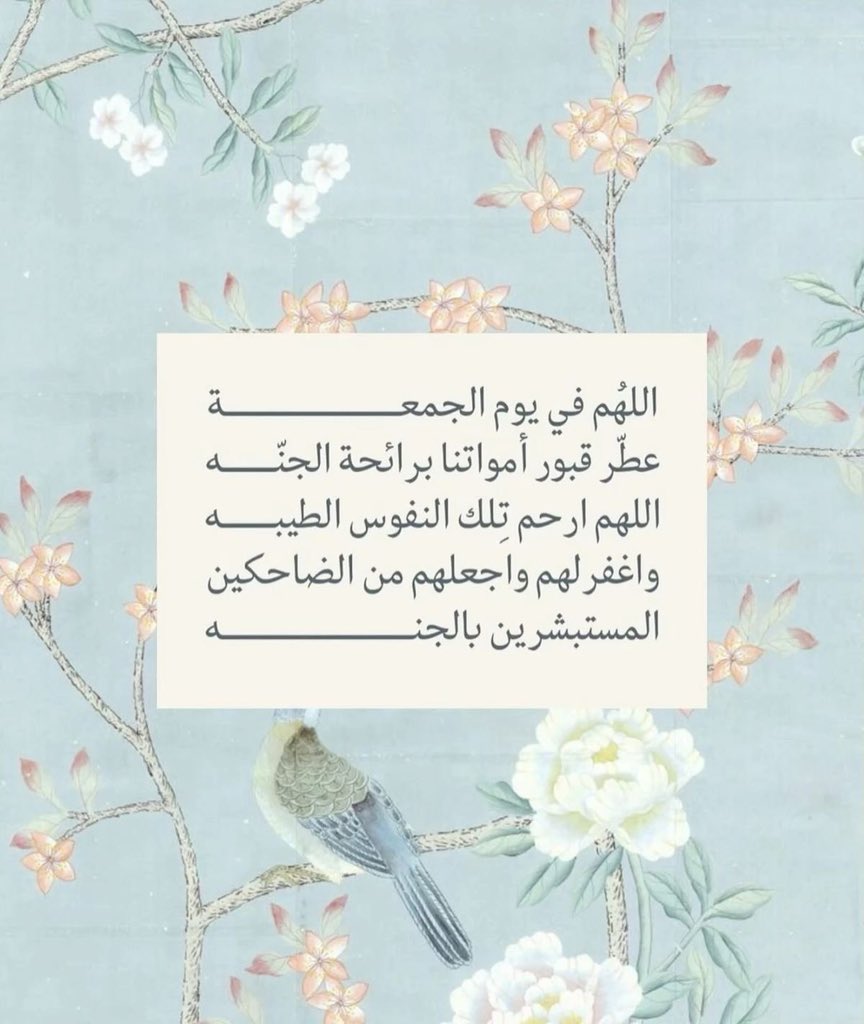 اللهُم في يوم الجمعـــــــــــــــــة
عطّر قبور أمواتنا برائحة الجنّـــــه
اللهم ارحم تِلك النفوس الطيبـــــه
واغفرلهم واجعلهم من الضاحكين
المستبشرين بالجنـــــــــــــــــــه